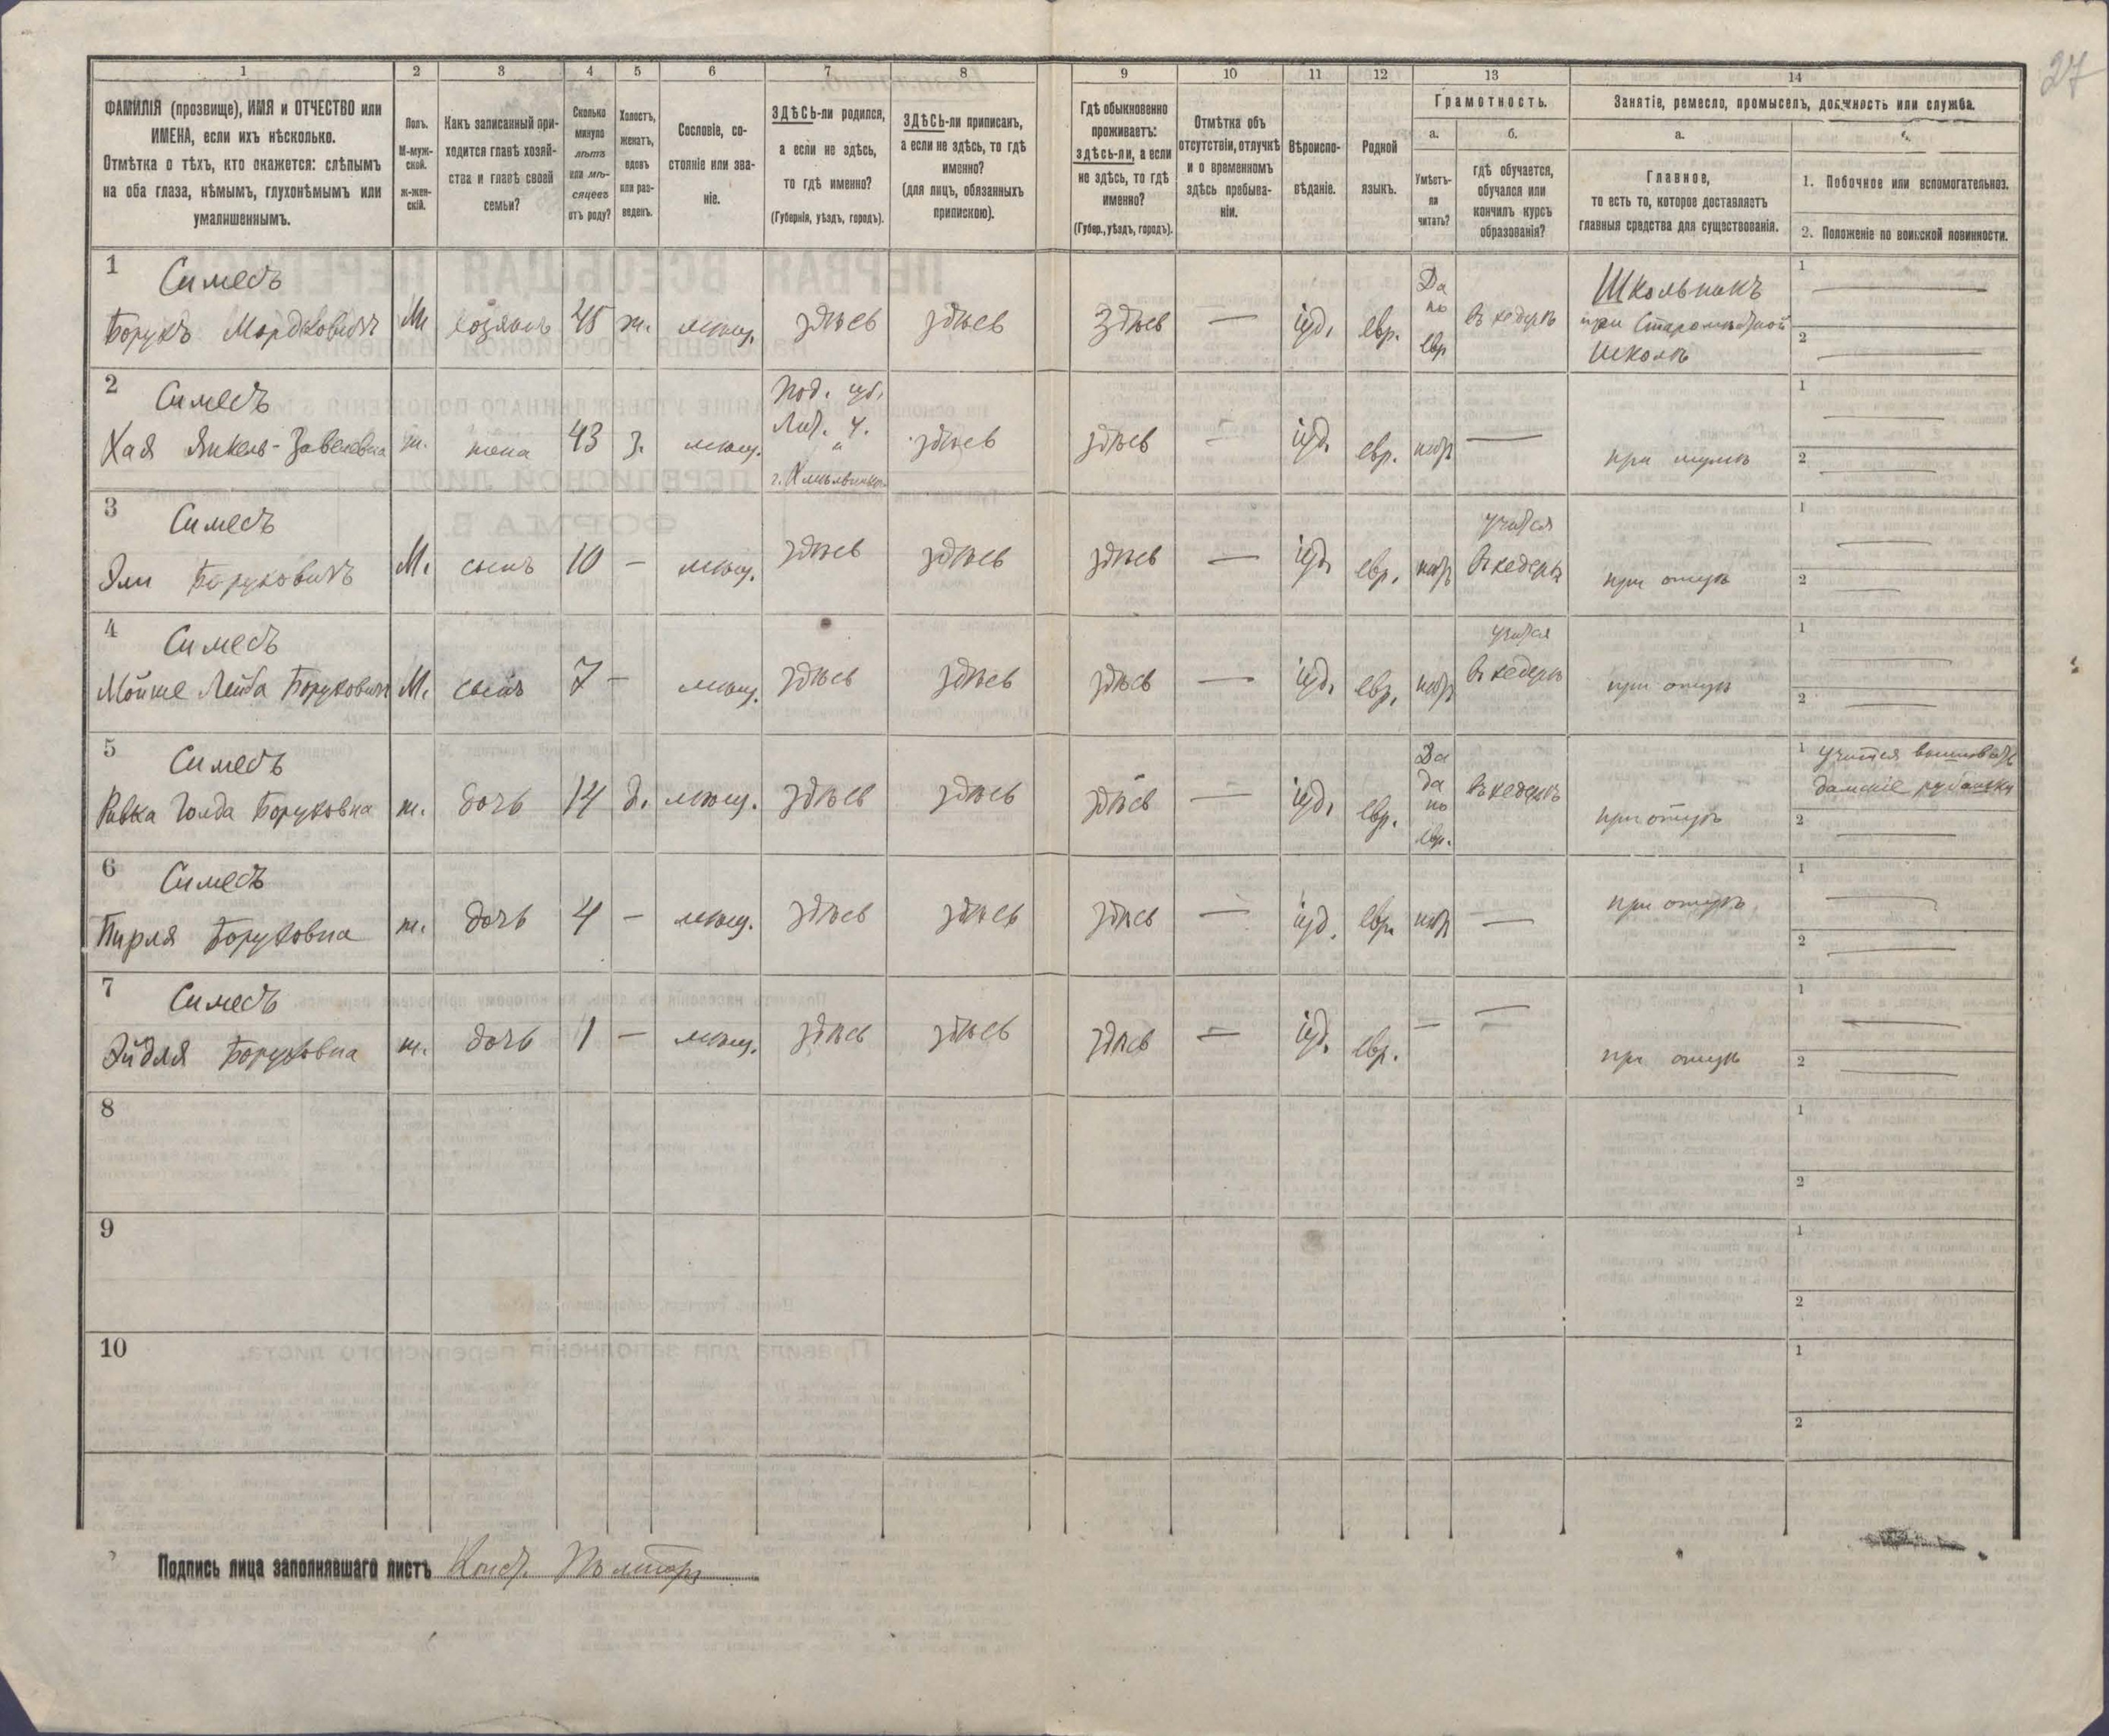 27
1 2 3 4 5 6 7 8 9 10 11 12 13 14
ФАМИЛІЯ (прозвище), ИМЯ и ОТЧЕСТВО или
ИМЕНА, если ихъ нѣсколько.
Отмѣтка о тѣхъ, кто окажется: слѣпымъ
на оба глаза, нѣмымъ, глухонѣмымъ или
умалишеннымъ.
Полъ.
М-муж-
ской.
ж-жен-
скій.
Какъ записанный при-
ходится главѣ хозяй-
ства и главѣ своей
семьи?
Сколько
минуло
лѣтъ
или мѣ-
сяцевъ
отъ роду?
Холостъ,
женатъ,
вдовъ
или раз-
веденъ.
Сословіе, со-
стояніе или зва-
ніе.
ЗДѢСЬ-ли родился,
а если не здѣсь,
то гдѣ именно?
(Губернія, уѣздъ, городъ).
ЗДѢСЬ-ли приписанъ,
а если не здѣсь, то гдѣ
именно?
(для лицъ, обязанныхъ
припискою).
Гдѣ обыкновенно
проживаетъ:
здѣсь-ли, а если
не здѣсь, то гдѣ
именно?
(Губер., уѣздъ, городъ).
Отмѣтка объ
отсутствіи, отлучкѣ
и о временномъ
здѣсь пребыва-
ніи.
Вѣроиспо-
вѣданіе.
Родной
языкъ.
Грамотность.
а.
Умѣетъ-
ли
читать?
б.
гдѣ обучается,
обучался или
кончилъ курсъ
образованія?
Занятіе, ремесло, промыселъ, должность или служба.
а.
Главное,
то есть то, которое доставляетъ
главныя средства для существованія.
1. Побочное или вспомогательноз.
2. Положеніе по воинской повинности.
1 Симесъ
Борухъ Мордковичъ М хозяинъ 45 ж. мѣщ. здѣсь здѣсь здѣсь — іуд. евр. Да по евр въ хедерѣ Школьникъ при школѣ 1 — 2 —
2 Симесъ
Хая Янкель- ж. жена 43 З. мѣщ. Под. губ. Лит. у. здѣсь здѣсь — іуд. евр. нѣтъ — при мужѣ 1 — 2 —
3 Симесъ
Эли Боруховичъ М. сынъ 10 — мѣщ. здѣсь здѣсь здѣсь — іуд. евр. нѣтъ учится въ хедерѣ при отцѣ 1 — 2 —
4 Симесъ
Мойше Лейба Боруховичъ М. сынъ 7 — мѣщ. здѣсь здѣсь здѣсь — іуд. евр. нѣтъ учится въ хедерѣ при отцѣ 1 — 2 —
5 Симесъ
Ривка Голда Боруховна ж. дочь 14 д. мѣщ. здѣсь здѣсь здѣсь — іуд. евр. Да да по евр. въ хедерѣ при отцѣ 1 Учится дамскіе рубашки 2 —
6 Симесъ
Пирля Боруховна ж. дочь 4 — мѣщ. здѣсь здѣсь здѣсь — іуд. евр. нѣтъ — при отцѣ 1 — 2 —
7 Симесъ
Эйдля Боруховна ж. дочь 1 — мѣщ. здѣсь здѣсь здѣсь — іуд. евр. — — при отцѣ 1 — 2 —
8 1 2
9 1 2
10 1 2
Подпись лица заполнявшаго листъ